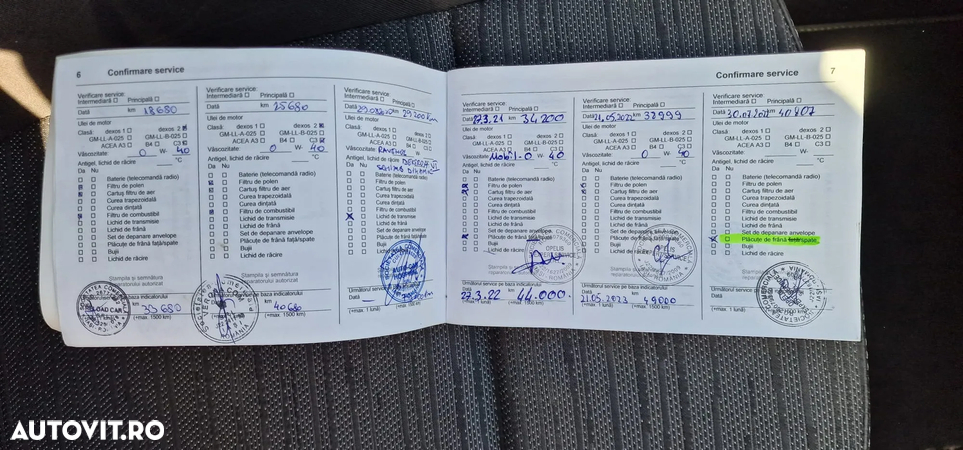 6 Confirmare service
Verificare service:
Intermediară Principală
km 18680
Data
Ulei de motor
Clasă: dexos 1 dexos 2
GM-LL-A-025 GM-LL-B-025
ACEA A3 B4 C3
Vâscozitate: 0 W- 40
Antigel, lichid de răcire °C
Da Nu
Baterie (telecomandă radio)
Filtru de polen
Cartuş filtru de aer
Curea trapezoidală
Curea dinţată
Filtru de combustibil
Lichid de transmisie
Lichid de frână
Set de depanare anvelope
Plăcuţe de frână faţă/spate
Bujii
Lichid de răcire
Ştampila şi semnătura
reparatorului autorizat
Următorul service pe baza indicatorului
35680
(+max. 1500 km)
Verificare service:
Intermediară Principală
Data km 25680
Ulei de motor
Clasă: dexos 1 dexos 2
GM-LL-A-025 GM-LL-B-025
ACEA A3 B4 C3
Vâscozitate: 0 W- 40
Antigel, lichid de răcire °C
Da Nu
Baterie (telecomandă radio)
Filtru de polen
Cartuş filtru de aer
Curea trapezoidală
Curea dinţată
Filtru de combustibil
Lichid de transmisie
Lichid de frână
Set de depanare anvelope
Plăcuţe de frână faţă/spate
Bujii
Lichid de răcire
Ştampila şi semnătura
reparatorului autorizat
Următorul service pe baza indicatorului
40680
(+max. 1500 km)
Verificare service:
Intermediară Principală
Data
29200 km
Ulei de motor
Clasă: dexos 1 dexos 2
GM-LL-A-025 GM-LL-B-025
ACEA A3 B4 C3
Vâscozitate
Antigel, lichid de răcire
DEXRON VI
SCHIMB
Da Nu
Baterie (telecomandă radio)
Filtru de polen
Cartuş filtru de aer
Curea trapezoidală
Curea dinţată
Filtru de combustibil
Lichid de transmisie
Lichid de frână
Set de depanare anvelope
Plăcuţe de frână faţă/spate
Bujii
Lichid de răcire
Următorul service pe baza indicatorului
Data
(+max. 1 lună)
Confirmare service 7
Verificare service:
Intermediară Principală
Data 27.3.21 km 34200
Ulei de motor
Clasă: dexos 1 dexos 2
GM-LL-A-025 GM-LL-B-025
ACEA A3 B4 C3
Vâscozitate Mobil-0 W- 40
Antigel, lichid de răcire °C
Da Nu
Baterie (telecomandă radio)
Filtru de polen
Cartuş filtru de aer
Curea trapezoidală
Curea dinţată
Filtru de combustibil
Lichid de transmisie
Lichid de frână
Set de depanare anvelope
Plăcuţe de frână faţă/spate
Bujii
Lichid de răcire
OPELIS
Următorul service pe baza indicatorului
Data
27.3.22 44.000
(+max. 1 lună) (+max. 1500 km)
Verificare service:
Intermediară Principală
Data 21.05.2022 km 38999
Ulei de motor
Clasă: dexos 1 dexos 2
GM-LL-A-025 GM-LL-B-025
ACEA A3 B4 C3
Vâscozitate: 0 W- 40
Antigel, lichid de răcire °C
Da Nu
Baterie (telecomandă radio)
Filtru de polen
Cartuş filtru de aer
Curea trapezoidală
Curea dinţată
Filtru de combustibil
Lichid de transmisie
Lichid de frână
Set de depanare anvelope
Plăcuţe de frână faţă/spate
Bujii
Lichid de răcire
Ştampila şi semnătura
Următorul service pe baza indicatorului
Data
21.05.2023 49000
(+max. 1 lună) (+max. 1500 km)
Verificare service:
Intermediară Principală
Data 30.07.2022 km 40807
Ulei de motor
Clasă: dexos 1 dexos 2
GM-LL-A-025 GM-LL-B-025
ACEA A3 B4 C3
Vâscozitate: W-
Antigel, lichid de răcire °C
Da Nu
Baterie (telecomandă radio)
Filtru de polen
Cartuş filtru de aer
Curea trapezoidală
Curea dinţată
Filtru de combustibil
Lichid de transmisie
Lichid de frână
Set de depanare anvelope
Plăcuţe de frână faţă/spate
Bujii
Lichid de răcire
Ştampila şi semnătura
Următorul service pe baza indicatorului
Data
(+max. 1 lună) (+max. 1500 km)
AUTOVIT.RO